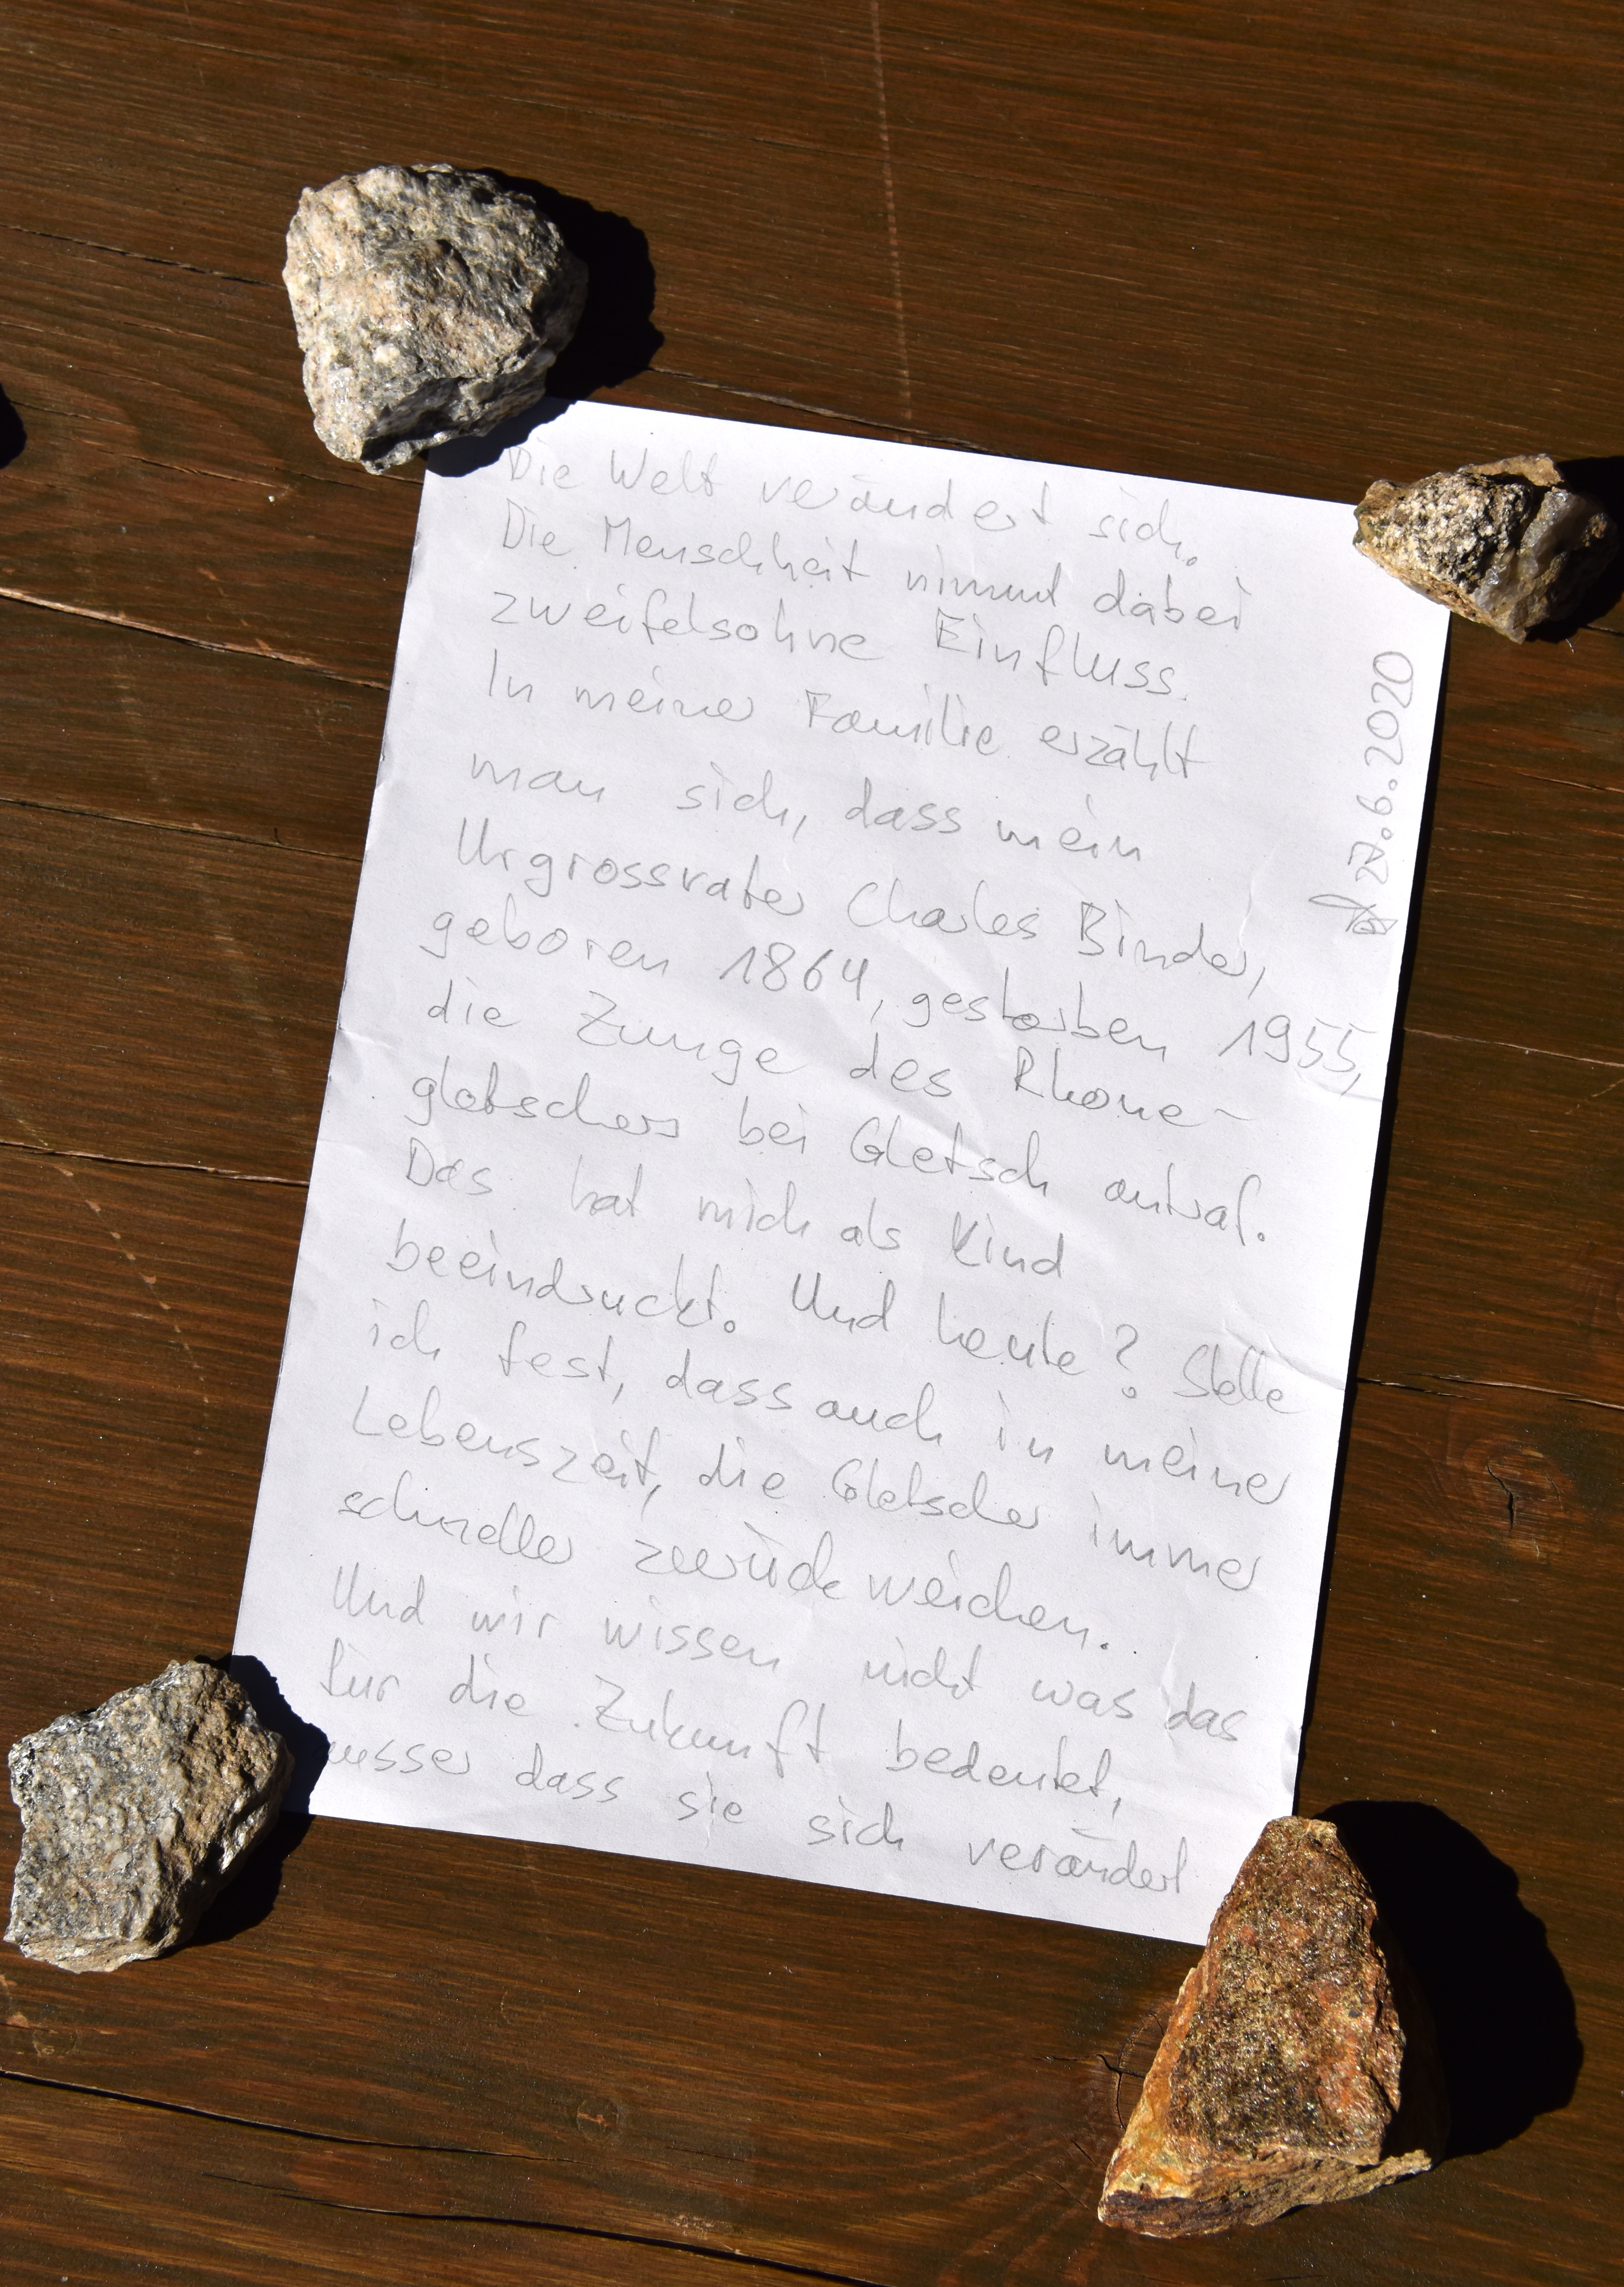 Die Welt verändert sich.
Die Menschheit nimmt dabei
zweifelsohne Einfluss.
In meiner Familie erzählt
man sich, dass mein
Urgrossvater Charles Binder,
geboren 1864, gestorben 1955,
die Zunge des Rhone-
gletschers bei Gletsch antraf.
Das hat mich als Kind
beeindruckt. Und heute? Stelle
ich fest, dass auch in meiner
Lebenszeit, die Gletscher immer
schneller zurückweichen.
Und wir wissen nicht was das
für die Zukunft bedeutet,
ausser dass sie sich verändert
27.6.2020